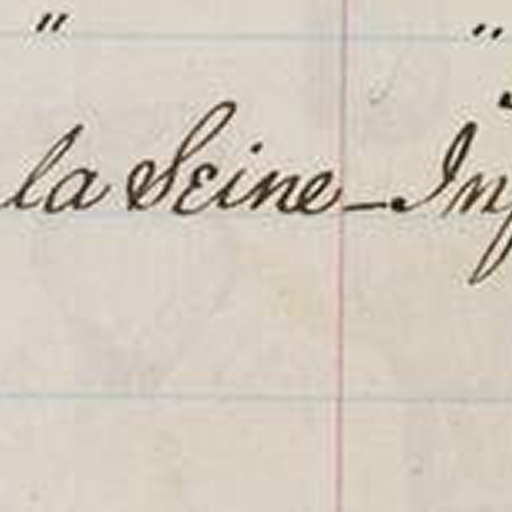 " "
la Seine-Inf